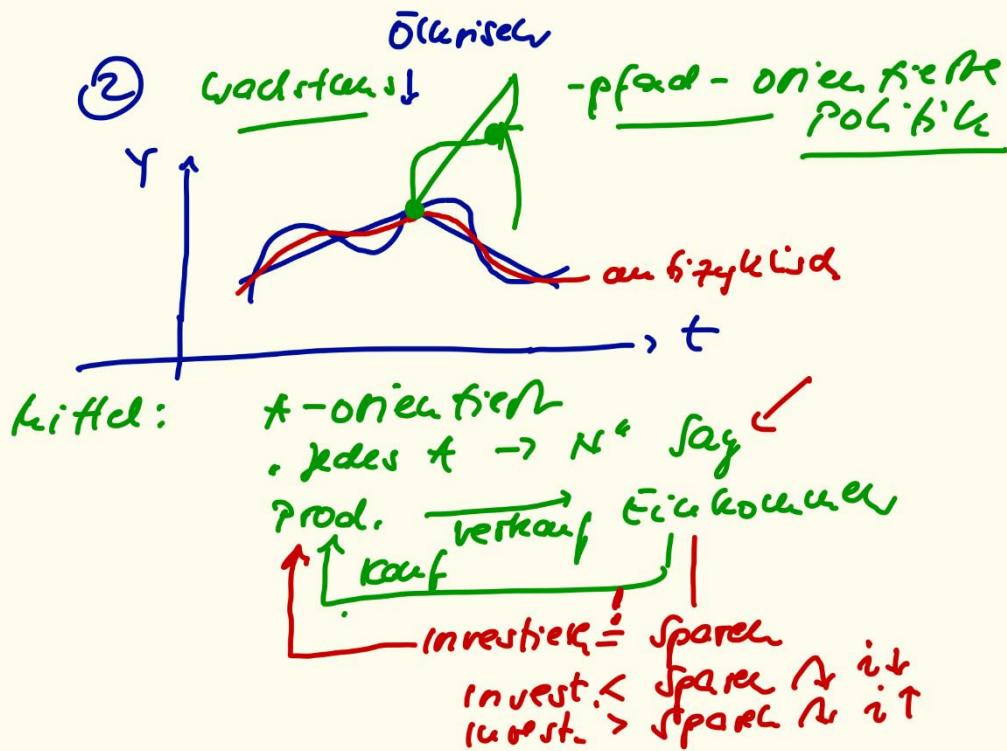 Ölkrise
② Wachstums↓ -pfad-orientierte
Politik
Y
antizyklisch
t
Mittel: A-orientiert
„jedes A → N“ Say
Prod. Verkauf Einkommen
Kauf
investieren = Sparen
invest. < Sparen ↷ i↓
invest. > Sparen ↷ i↑